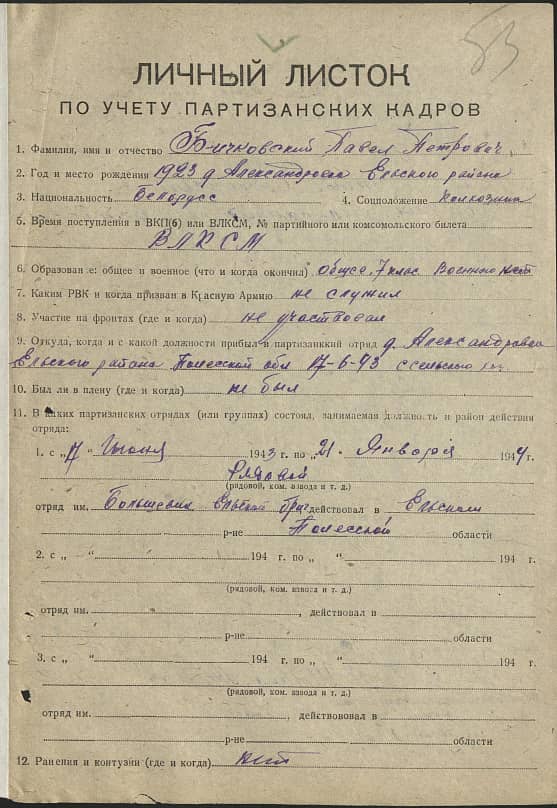 53
ЛИЧНЫЙ ЛИСТОК
ПО УЧЕТУ ПАРТИЗАНСКИХ КАДРОВ
1. Фамилия, имя и отчество Бычковский Павел Петрович
2. Год и место рождения 1923 д. Александровка Ельского района
3. Национальность белорус 4. Соцположение колхозник
5. Время поступления в ВКП(б) или ВЛКСМ, № партийного или комсомольского билета
ВЛКСМ
6. Образован е: общее и военное (что и когда окончил) общее 7 клас военного нет
7. Каким РВК и когда призван в Красную Армию не служил
8. Участие на фронтах (где и когда) не участвовал
9. Откуда, когда и с какой должности прибыл в партизанккий отряд д. Александровка
Ельского района Полесской обл 17-6-43 с сельского
10. Был ли в плену (где и когда) не был
11. В каких партизанских отрядах (или группах) состоял, занимаемая должность и район действия
отряда:
1. с „17" Июня 1943 г. по „21" Января 1944 г.
Рядовой
(рядовой, ком. взвода и т. д.)
отряд им. Большевик Ельской бриг действовал в Ельском
р-не Полесской области
2. с „ " 194 г. по „ " 194 г.
(рядовой, ком. взвода и т. д.)
отряд им. , действовал в
р-не области
3. с „ " 194 г. по „ " 194 г.
(рядовой, ком. взвода и т. д.)
отряд им. , действововал в
р-не области
12. Ранения и контузии (где и когда) нет